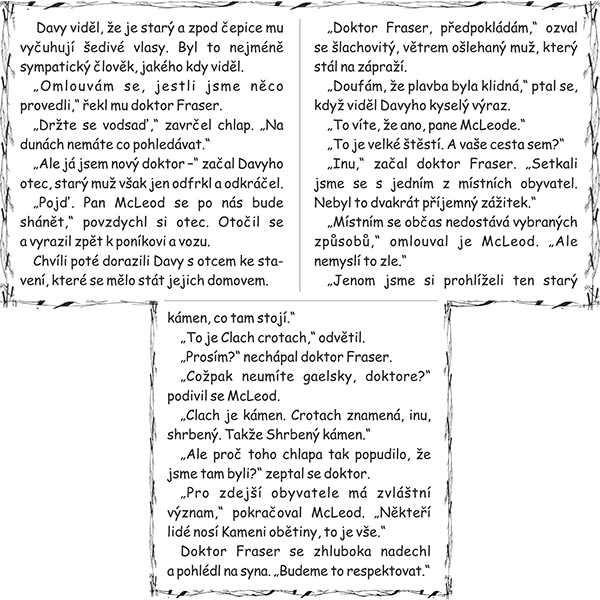 Davy viděl, že je starý a zpod čepice mu
vyčuhují šedivé vlasy. Byl to nejméně
sympatický člověk, jakého kdy viděl.
„Omlouvám se, jestli jsme něco
provedli,“ řekl mu doktor Fraser.
„Držte se vodsaď,“ zavrčel chlap. „Na
dunách nemáte co pohledávat.“
„Ale já jsem nový doktor –“ začal Davyho
otec, starý muž však jen odfrkl a odkráčel.
„Pojď. Pan McLeod se po nás bude
shánět,“ povzdychl si otec. Otočil se
a vyrazil zpět k poníkovi a vozu.
Chvíli poté dorazili Davy s otcem ke sta-
vení, které se mělo stát jejich domovem.
„Doktor Fraser, předpokládám,“ ozval
se šlachovitý, větrem ošlehaný muž, který
stál na zápraží.
„Doufám, že plavba byla klidná,“ ptal se,
když viděl Davyho kyselý výraz.
„To víte, že ano, pane McLeode.“
„To je velké štěstí. A vaše cesta sem?“
„Inu,“ začal doktor Fraser. „Setkali
jsme se s jedním z místních obyvatel.
Nebyl to dvakrát příjemný zážitek.“
„Místním se občas nedostává vybraných
způsobů,“ omlouval je McLeod. „Ale
nemyslí to zle.“
„Jenom jsme si prohlíželi ten starý
kámen, co tam stojí.“
„To je Clach crotach,“ odvětil.
„Prosím?“ nechápal doktor Fraser.
„Cožpak neumíte gaelsky, doktore?“
podivil se McLeod.
„Clach je kámen. Crotach znamená, inu,
shrbený. Takže Shrbený kámen.“
„Ale proč toho chlapa tak popudilo, že
jsme tam byli?“ zeptal se doktor.
„Pro zdejší obyvatele má zvláštní
význam,“ pokračoval McLeod. „Někteří
lidé nosí Kameni obětiny, to je vše.“
Doktor Fraser se zhluboka nadechl
a pohlédl na syna. „Budeme to respektovat.“